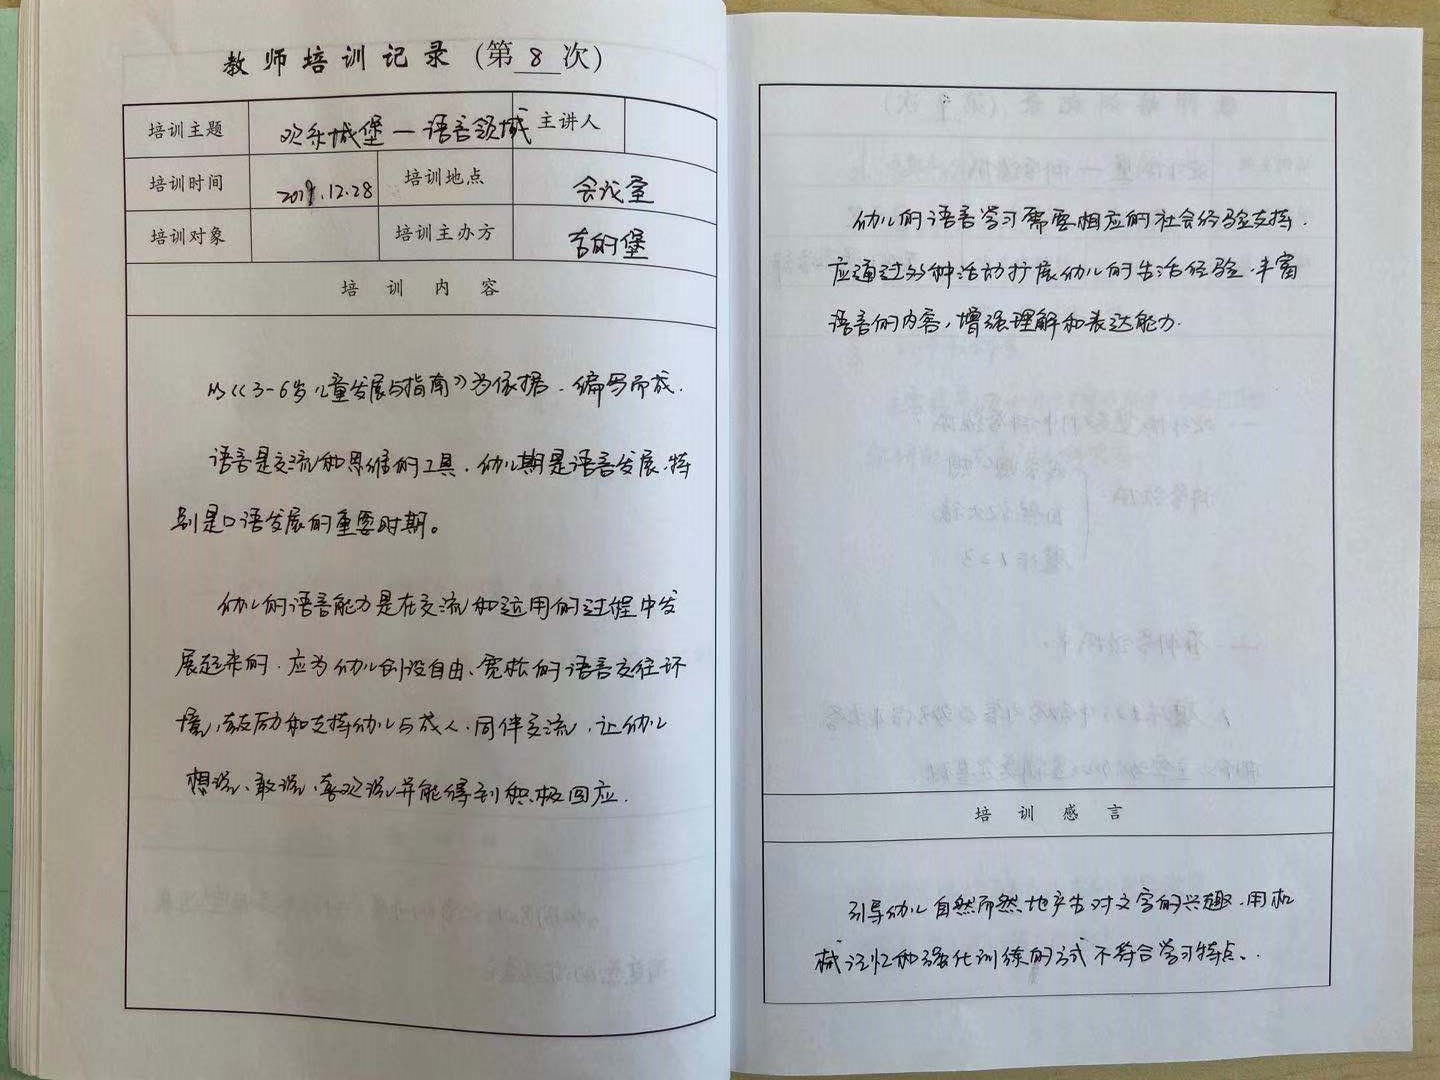 教师培训记录(第8次)
培训主题 欢乐城堡—语言领域 主讲人
培训时间 2019.12.28 培训地点 会议室
培训对象 培训主办方 吉的堡
培训内容
以《3-6岁儿童发展与指南》为依据.编写而成.
语言是交流和思维的工具.幼儿期是语言发展.特
别是口语发展的重要时期。
幼儿的语言能力是在交流和运用的过程中发
展起来的.应为幼儿创设自由、宽松的语言交往环
境,鼓励和支持幼儿与成人、同伴交流,让幼儿
想说、敢说、喜欢说并能得到积极回应.
幼儿的语言学习需要相应的社会经验支持.
应通过多种活动扩展幼儿的生活经验.丰富
语言的内容,增强理解和表达能力.
培训感言
引导幼儿自然而然地产生对文字的兴趣.用机
械记忆和强化训练的方式不符合学习特点.